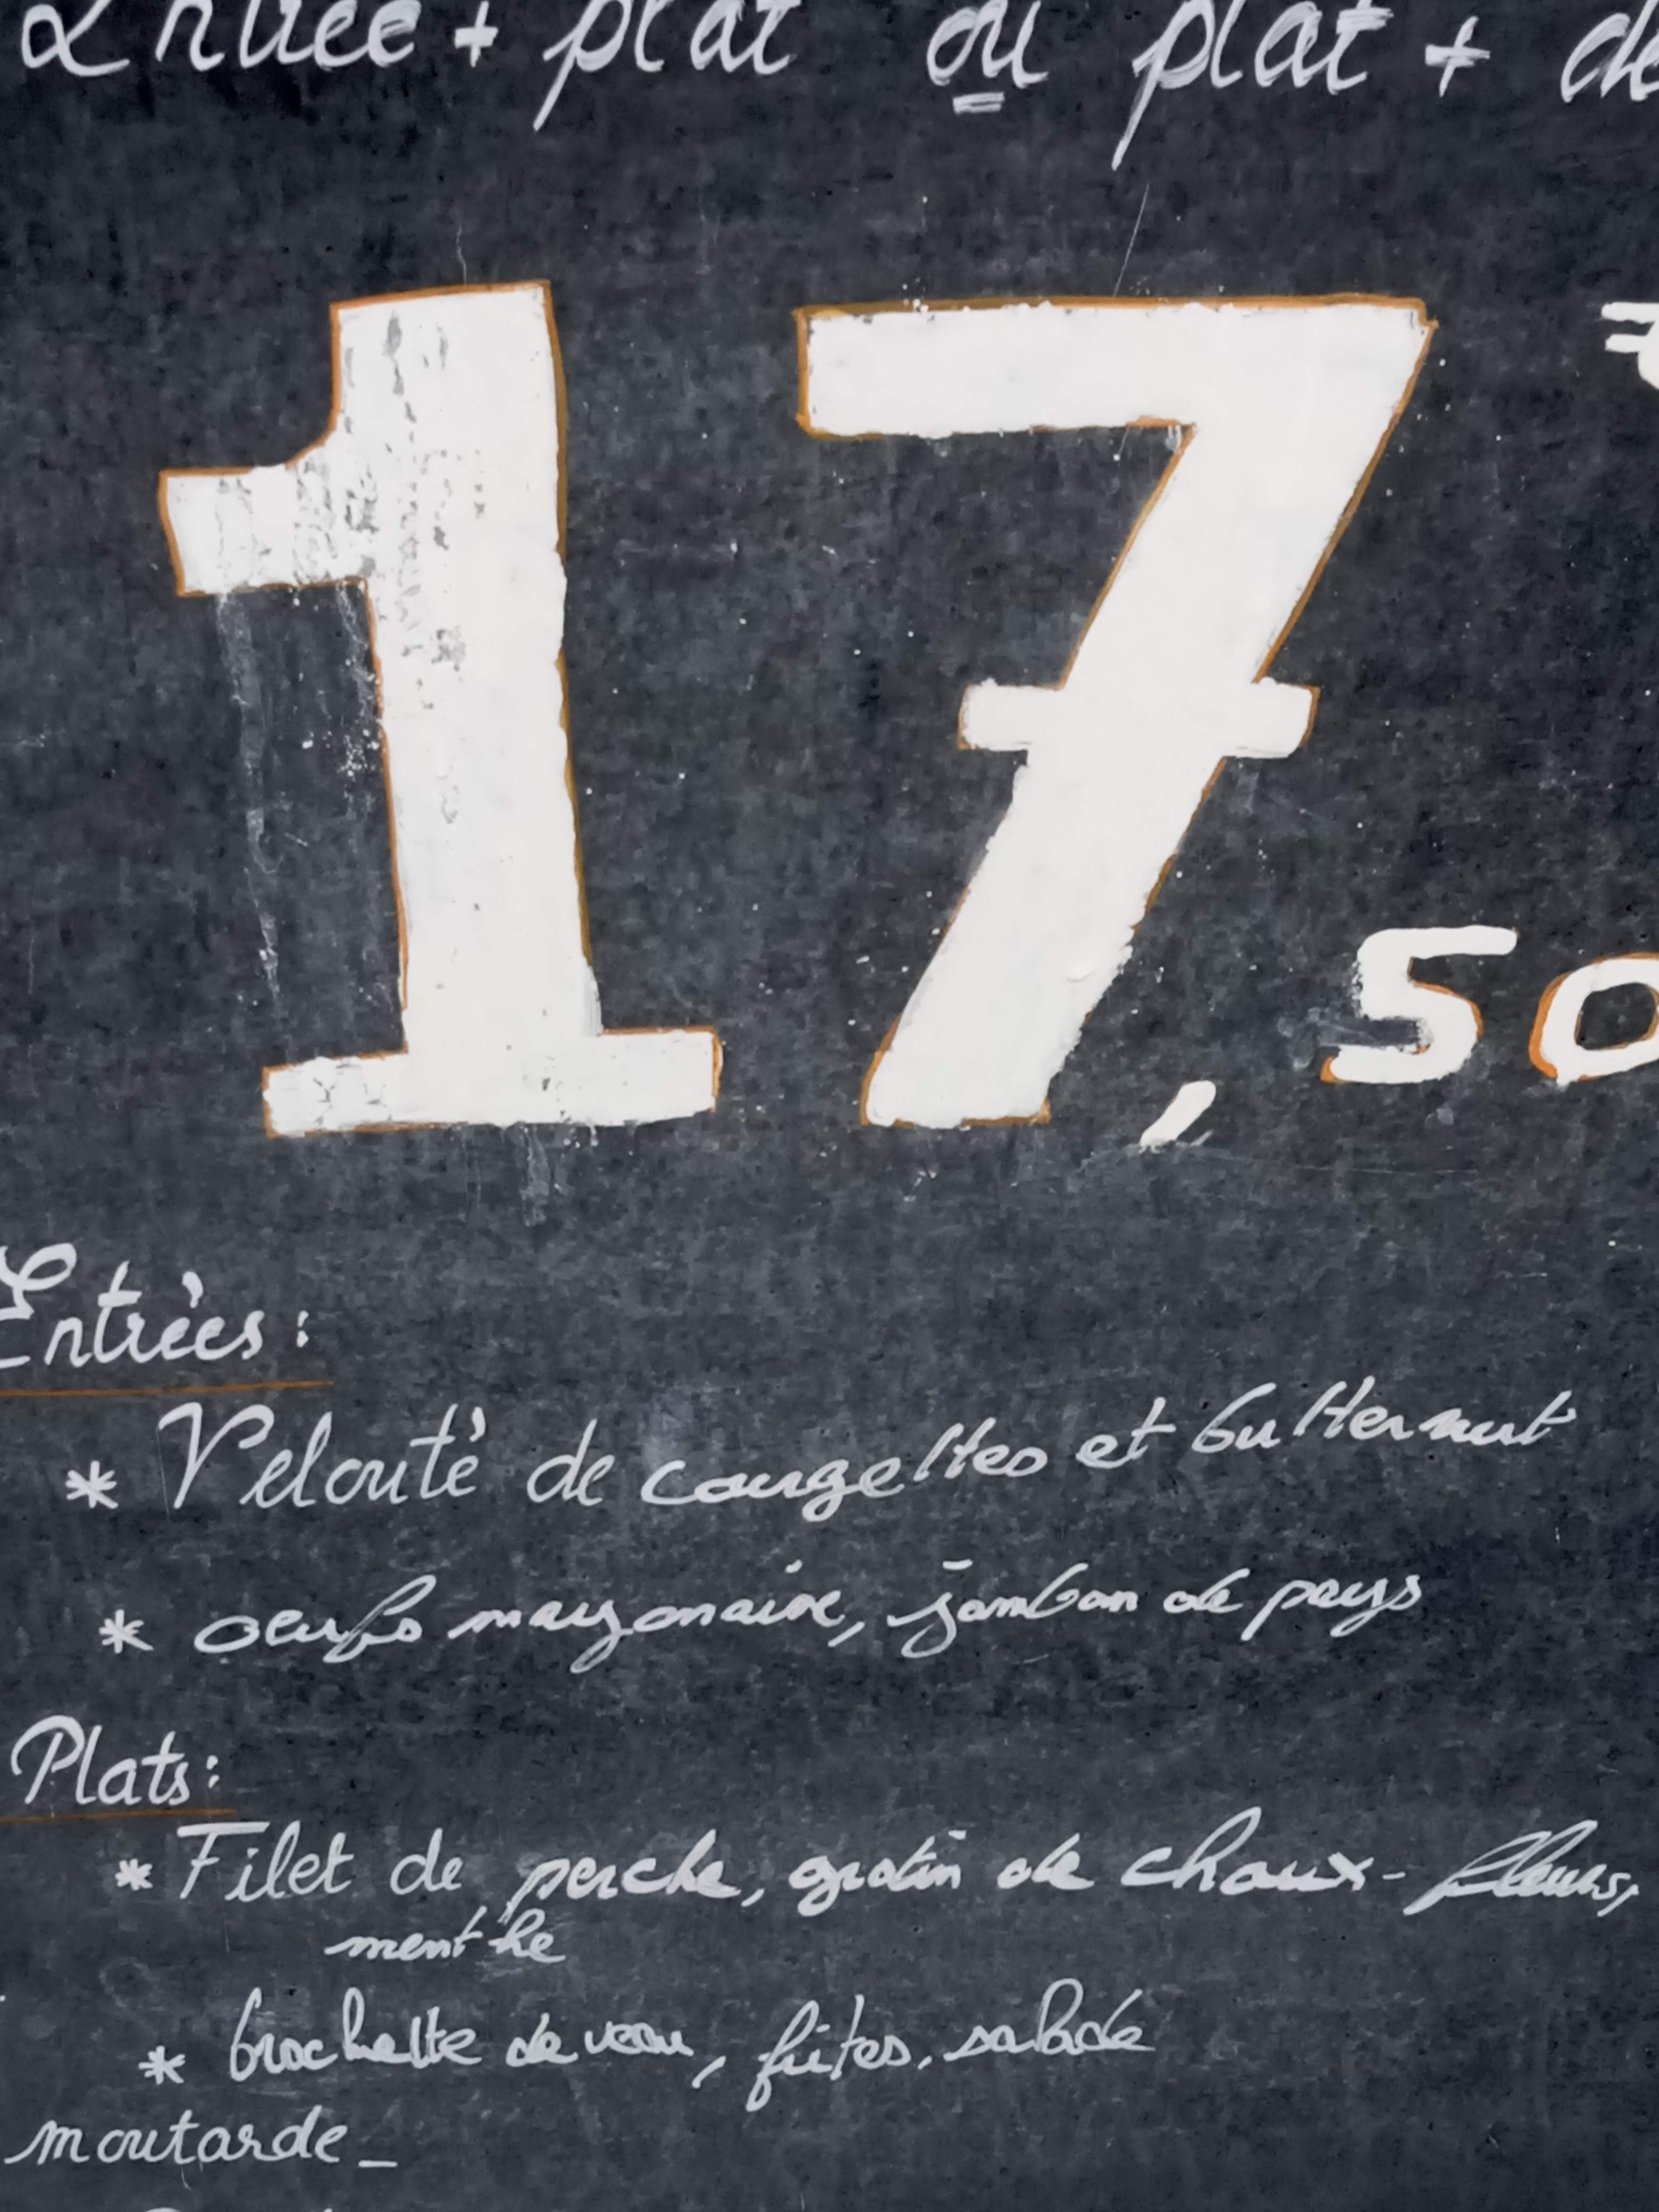 Entrée + plat ou plat + de
17,50 €
Entrées:
* Velouté de courgettes et butternut
* oeufs mayonaise, jambon de pays
Plats:
* Filet de perche, gratin de choux-fleurs,
menthe
* brochette de veau, frites, salade
moutarde_